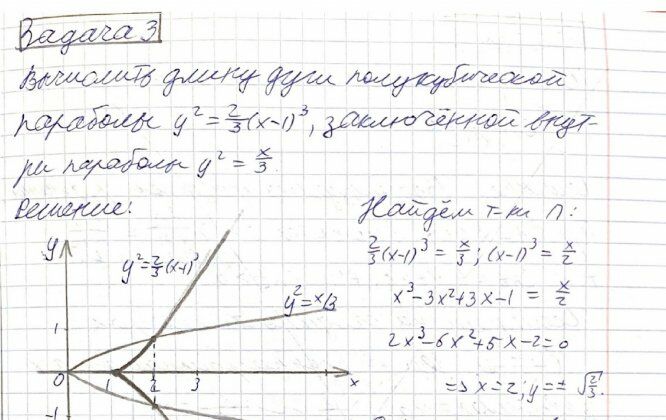 Задача 3
Вычислить длину дуги полукубической
параболы y² = 2/3 (x-1)³, заключённой внут-
ри параболы y² = x/3.
Решение:
Найдём т-ки П:
2/3 (x-1)³ = x/3; (x-1)³ = x/2
x³-3x²+3x-1 = x/2
2x³-6x²+5x-2=0
=> x=2; y=± √2/3.
y
y²=2/3(x-1)³
y²=x/3
1
0
1
2
3
x
-1